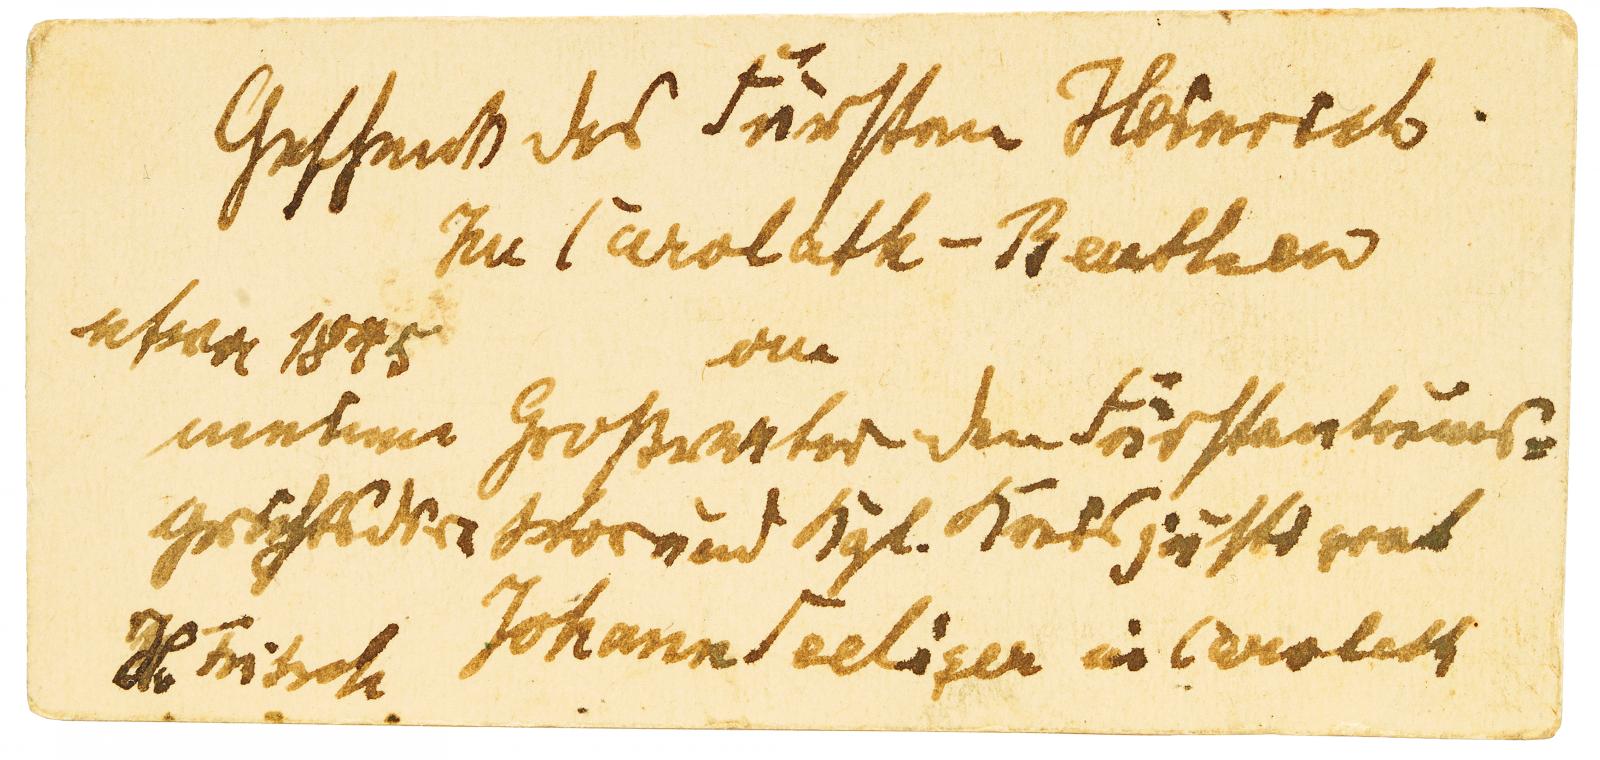 Geschenk des Fürsten Heinrich.
zu Carolath-Beuthen
etwa 1845 an
meinen Großvater den Fürstentums=
gerichtsdirektor und Kgl. Kreisjustizrat
H. Fritsch Johann Seeliger in Carolath